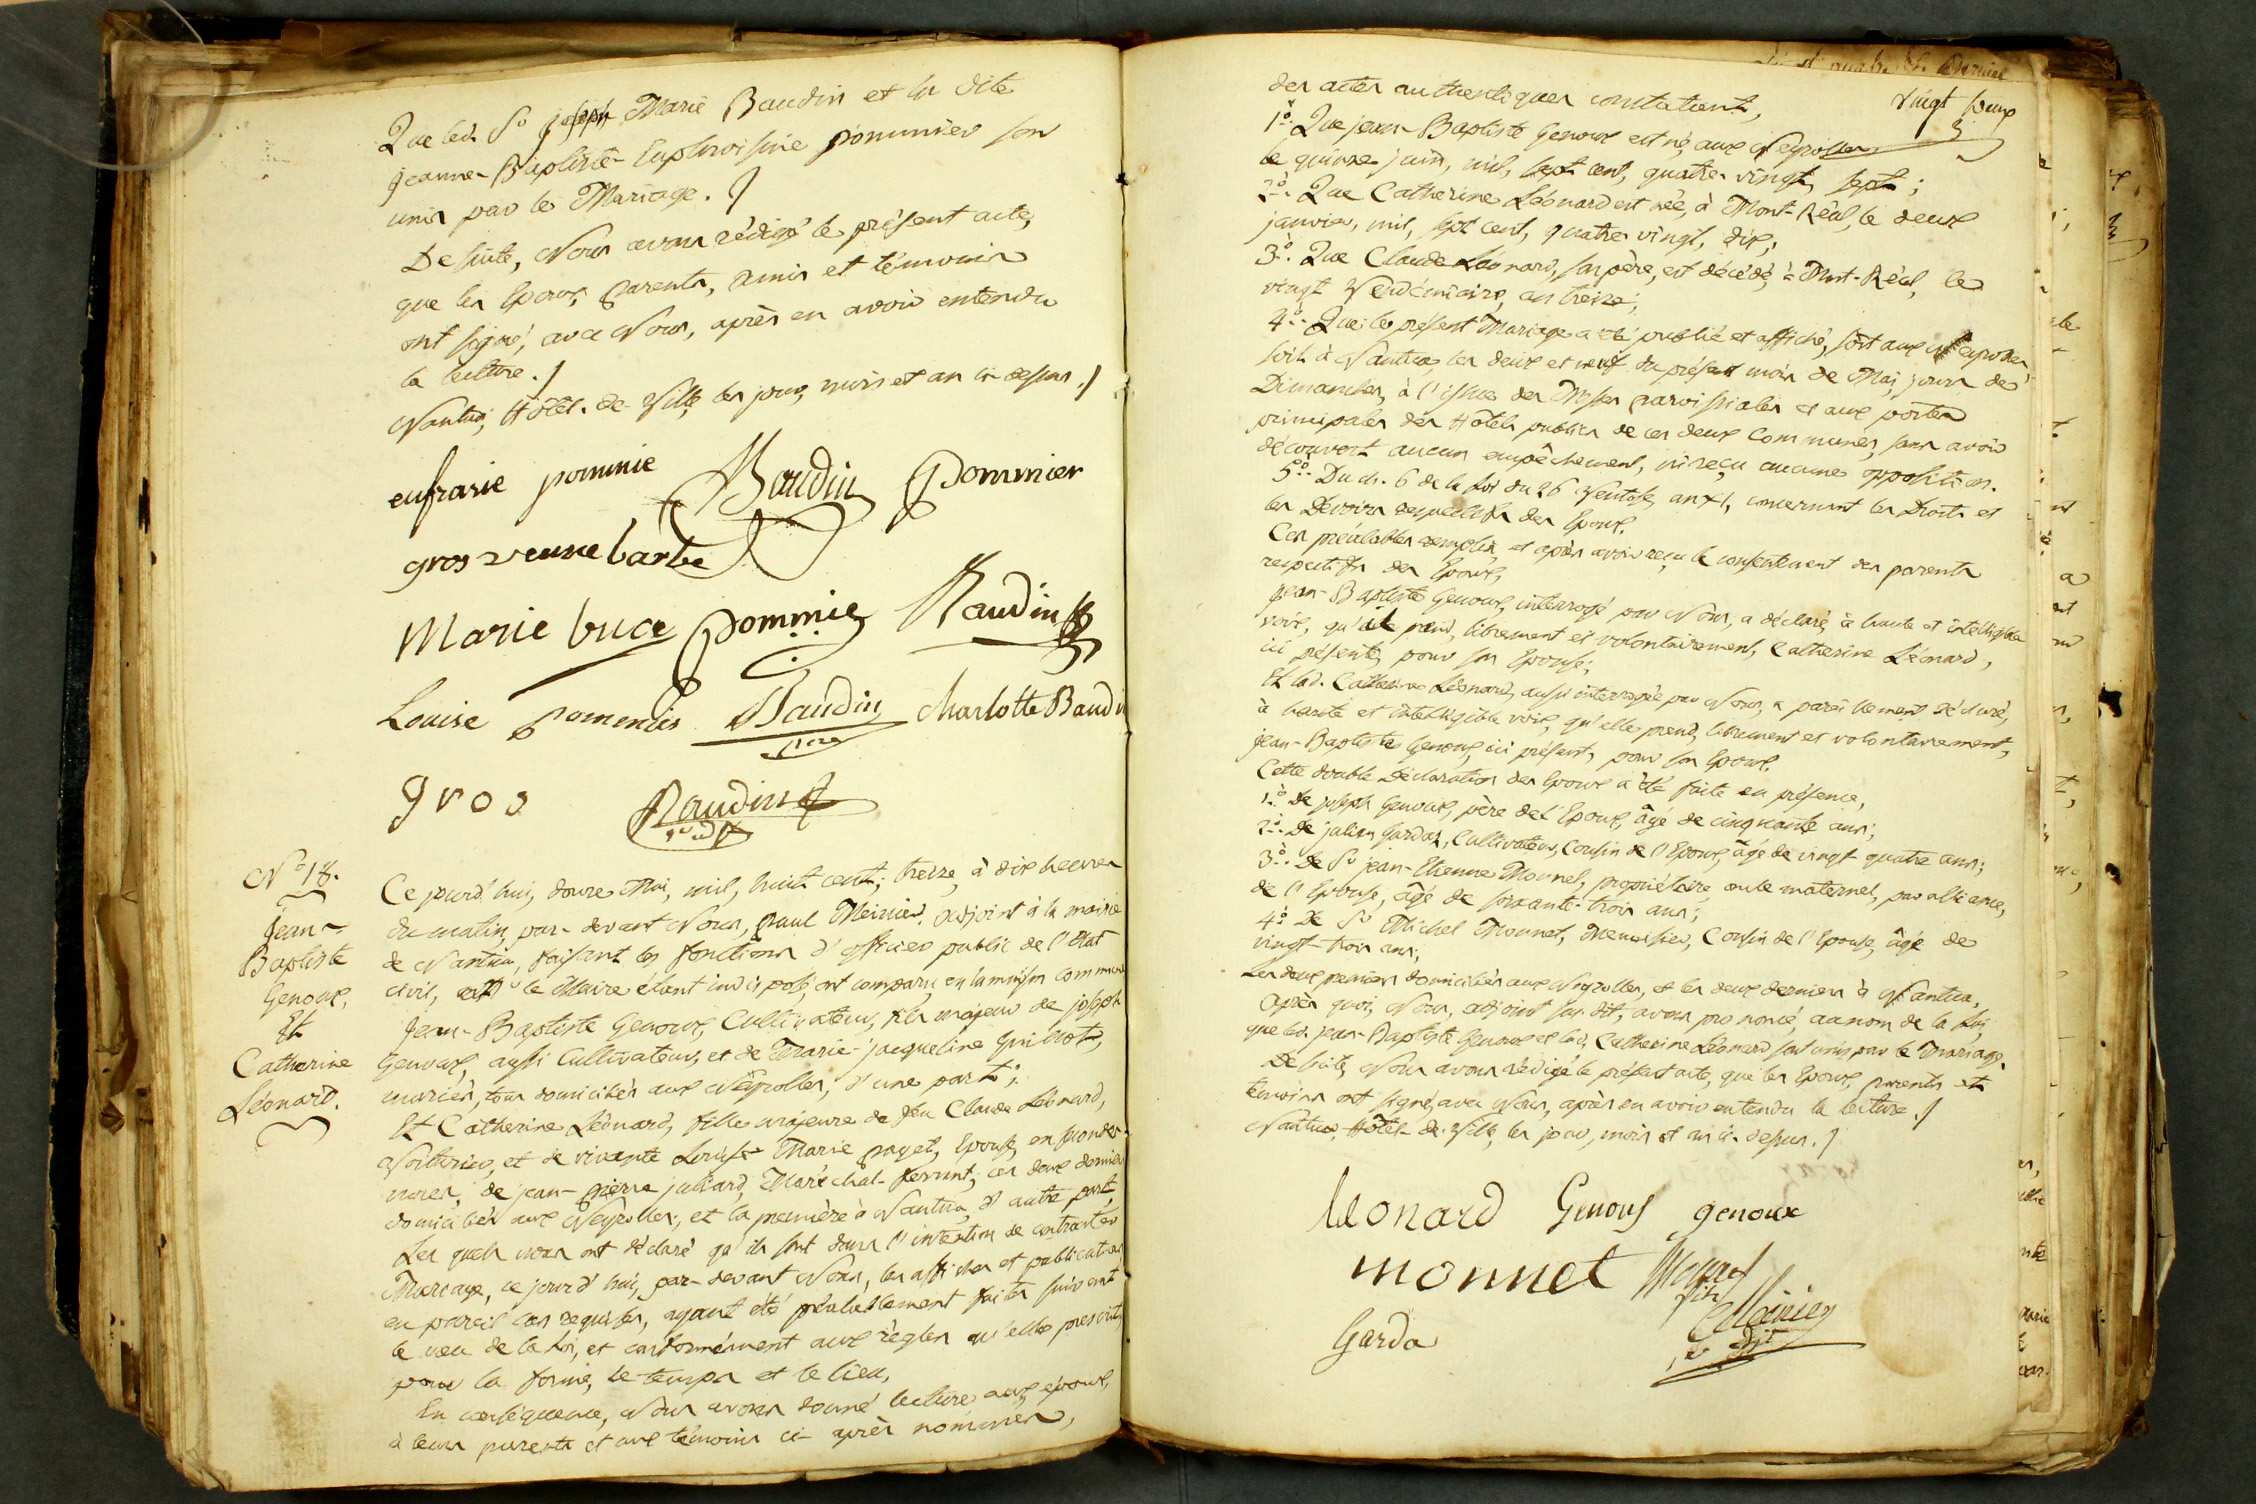 Que led. Sr joseph Marie Baudin et la dite
jeanne-Baptiste-Euphroisine pommier son
unis par le Mariage./
De suite, Nous avons rédigé le présent acte,
que les Epoux, parents, amis et témoins
ont signé, avec Nous, après en avoir entendu
la lecture./
Nantua, Hôtel-de-Ville, les jour, mois et an ci-dessus./
eufrasie pommie Baudin Pommier
gros veuve barbe
Marie buce pommie Baudin
Louise pomentier Baudin charlotte Baudin
gros Baudin
No 18.
Jean-
Baptiste
Genoux,
Et
Catherine
Léonard.
Ce jourd'hui, douze Mai, mil, huit cent, treize, à dix heures
du matin, par-devant Nous, paul Meinier, adjoint à la mairie
de Nantua, faisant les fonctions d'officier public de l'Etat
civil, le Maire étant indisposé, ont comparu, en la maison commune
Jean-Baptiste Genoux, Cultivateur, fils majeur de joseph
Genoux, aussi Cultivateur, et de Marie-jacqueline Guillot,
mariés, tous domiciliés aux Neyrolles, d'une part;
Et Catherine Léonard, fille majeure de feu Claude Léonard,
Voiturier, et de vivante Louise Marie paget, Epouse, en secondes
noces, de jean-pierre juliard, Maréchal-ferrant, ces deux derniers
domiciliés aux Neyrolles, et la première à Nantua, d'autre part,
Les quels nous ont déclaré qu'ils sont dans l'intention de contracter
Mariage, ce jourd'hui, par-devant Nous, les affiches et publications
en pareil cas requises, ayant été préalablement faites suivant
le vœu de la Loi, et conformément aux règles qu'elle prescrit,
pour la forme, le temps et le lieu,
En conséquence, Nous avons donné lecture aux époux,
à leurs parents et aux témoins ci-après nommés,
vingt deux
des actes authentiques constatant,
1o. Que jean-Baptiste Genoux est né, aux Neyrolles
le quinze juin, mil, sept cent, quatre-vingt, sept;
2o. Que Catherine Léonard est née, à Mont-Réal, le deux
janvier, mil, sept cent, quatre vingt, dix;
3o. Que Claude Léonard, son père, est décédé, à Mont-Réal, le
vingt Vendémiaire, an treize;
4o. Que le présent Mariage a été publié et affiché, soit aux Neyrolles,
soit à Nantua, les deux et neuf du présent mois de Mai, jours de
Dimanches, à l'issue des Messes paroissiales et aux portes
principales des Hôtels publics de ces deux communes, sans avoir
découvert aucun empêchement, ni reçu aucune opposition.
5o. Du ch. 6 de la Loi du 26 Ventose, an XI, concernant les Droits et
les Devoirs respectifs des Epoux.
Ces préalables remplis, et après avoir reçu le consentement des parents
respectifs des Epoux,
Jean-Baptiste Genoux, interrogé par Nous, a déclaré, à haute et intelligible
voix, qu'il prend, librement et volontairement, Catherine Léonard,
ici présente, pour son Epouse;
Et lad. Catherine Léonard, aussi interrogée par Nous, a pareillement déclaré,
à haute et intelligible voix, qu'elle prend, librement et volontairement,
jean-Baptiste Genoux, ici présent, pour son Epoux.
Cette double Déclaration des Epoux a été faite en présence,
1o. De joseph Genoux, père de l'Epoux, âgé de cinquante ans;
2o. De julien Gardaz, Cultivateur, Cousin de l'Epoux, âgé de vingt quatre ans;
3o. De Sr jean-Etienne Monnet, propriétaire, oncle maternel, par alliance,
de l'Epouse, âgé de soixante-trois ans;
4o. De Sr Michel Monnet, Menuisier, Cousin de l'Epouse, âgé de
vingt-trois ans;
Les deux premiers domiciliés aux Neyrolles, et les deux derniers à Nantua.
Après quoi, Nous, adjoint sus dit, avons prononcé, au nom de la Loi,
que led. jean-Baptiste Genoux et lad. Catherine Léonard sont unis par le Mariage.
De suite, Nous avons rédigé le présent acte, que les Epoux, parents et
témoins ont signé, avec Nous, après en avoir entendu la lecture./
Nantua, Hôtel-de-Ville, les jour, mois et an ci-dessus./
leonard Genoux genoux
monnet Monnet
fils
Meinier
Garda
adjt